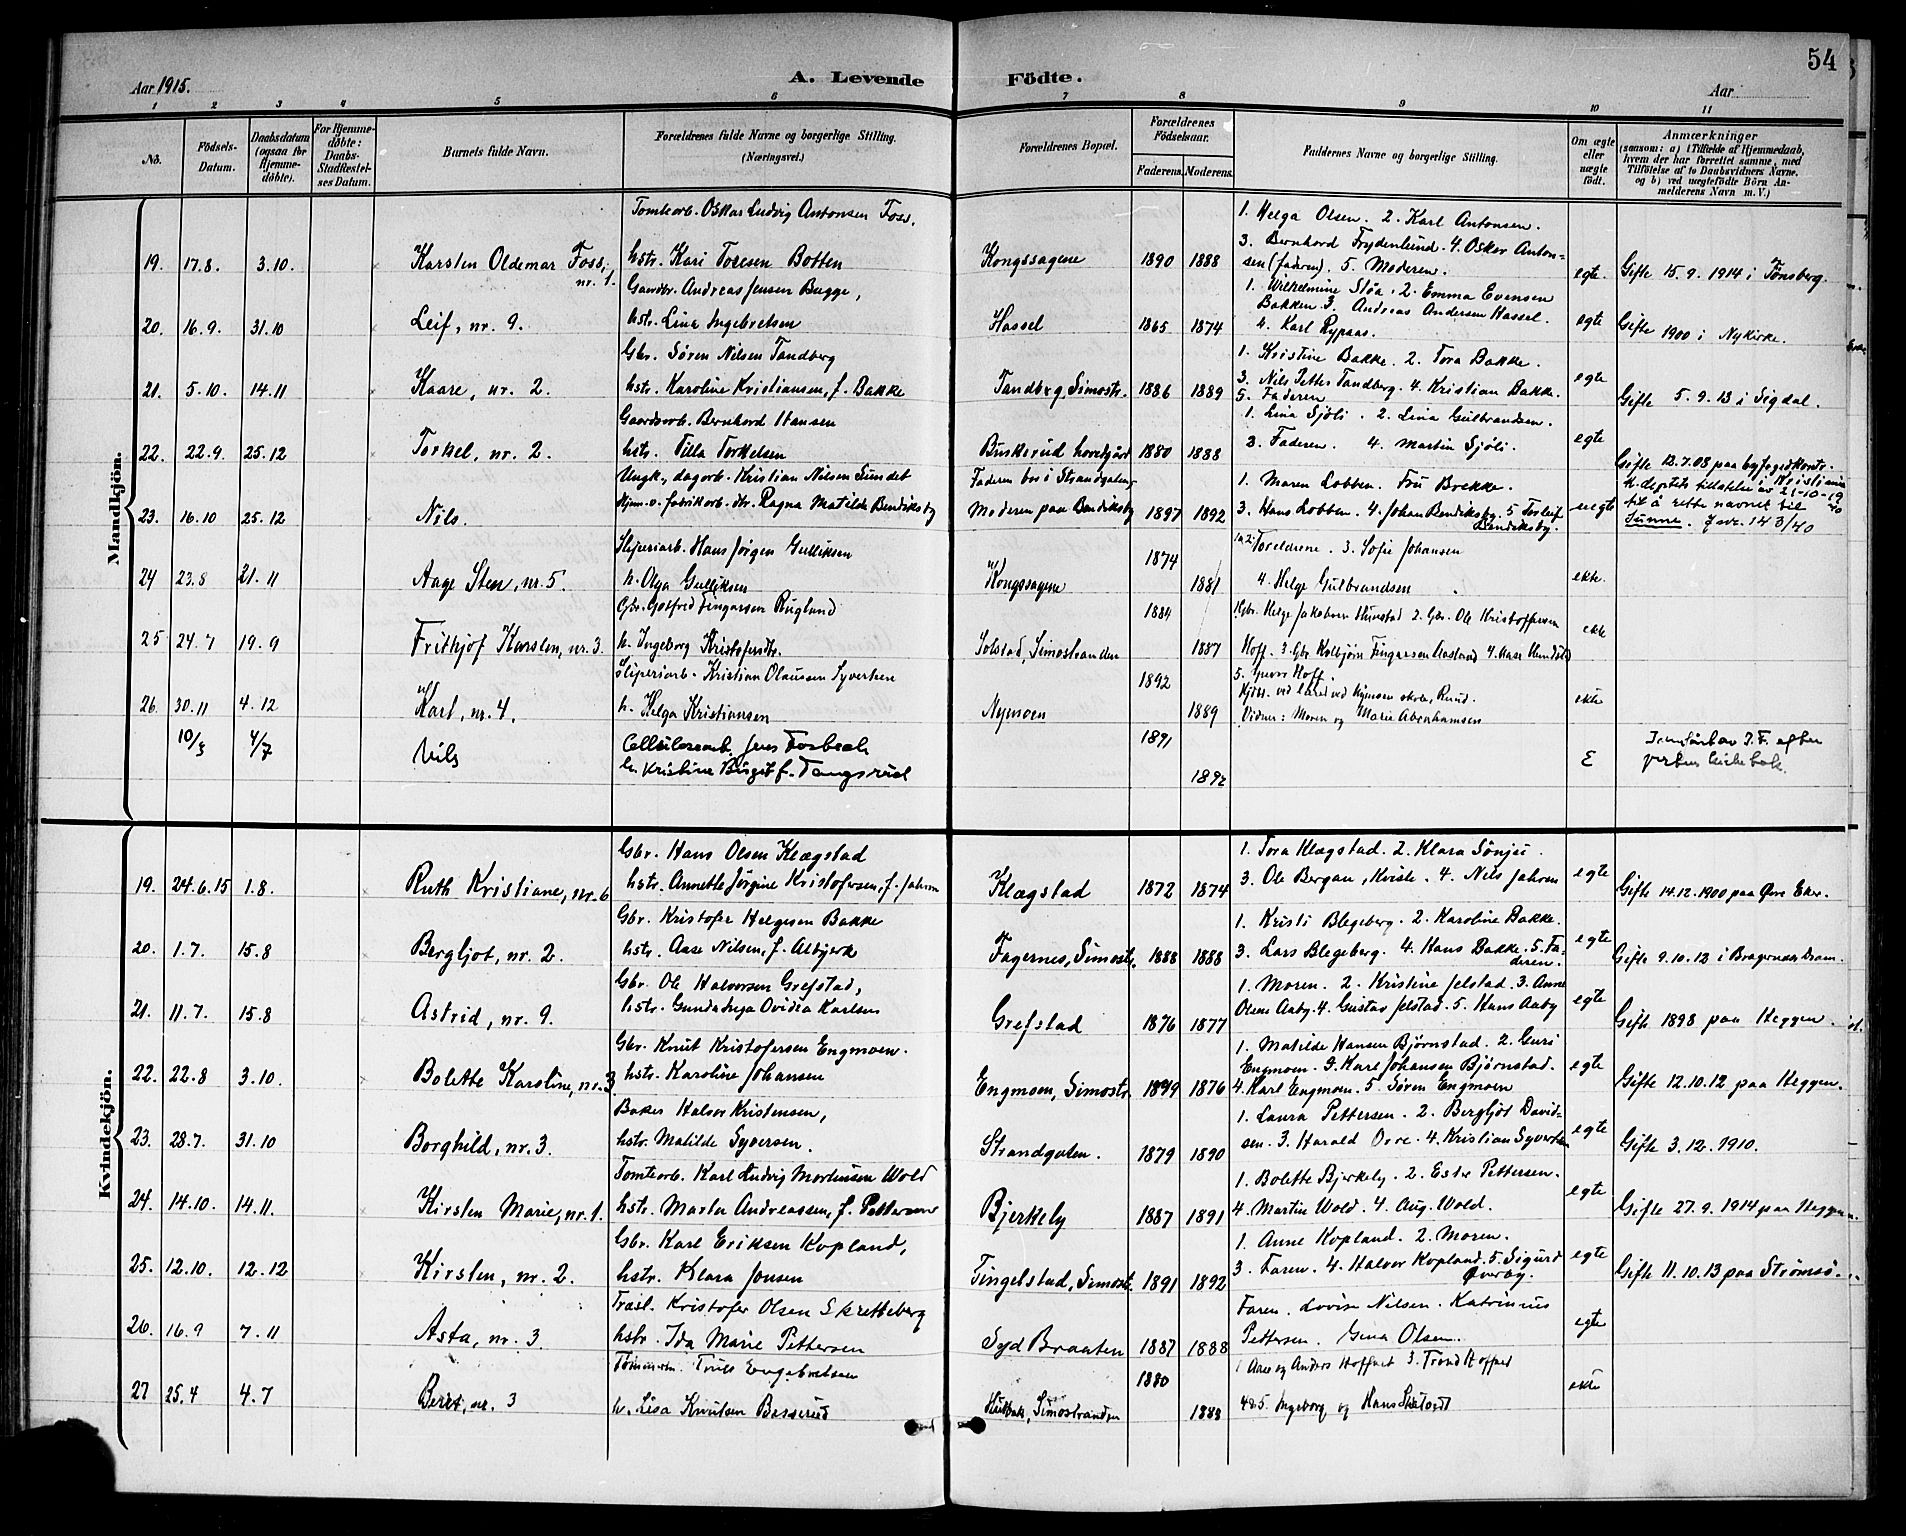 54
Aar 1915.
A. Levende Födte.
Aar
1 2 3 4 5 6 7 8 9 10 11
No.
Födsels-Datum.
Daabsdatum (ogsaa for Hjemme-döbte).
For Hjemme-döbte: Daabs-Stadfæstel-ses Datum.
Barnets fulde Navn.
Forældrenes fulde Navne og borgerlige Stilling.
(Næringsvei.)
Forældrenes Bopæl.
Forældrenes Födselsaar.
Faderens. Moderens.
Faddernes Navne og borgerlige Stilling.
Om ægte eller uægte født.
Anmærkninger
(saasom: a) i Tilfælde af Hjemmedaab,
hvem der har forrettet samme, med
Tilföielse af to Daabsvidners Navne.
og b) ved uægtefödte Börn An-
melderens Navn m. V.)
Mandkjön.
Tomtearb. Oskar Ludvig Antonsen Foss.
1. Helga Olsen. 2. Karl Antonsen.
3. Bernhard Frydenlund. 4. Oskar Anton-
19. 17.8. 3.10. Karsten Oldemar Foss, nr. 1. hstr. Kari Toresen Botten Kongssagene 1890 1888 sen (faderen). 5. Moderen. egte. Gifte 15.9.1914 i Tønsberg.
Gaardbr. Andreas Jensen Bugge,
1. Wilhelmine Sløa. 2. Emma Evensen
Bakken 3. Andreas Andersen Hassel.
20. 16.9. 31.10 Leif, nr. 9. hstr. Lina Ingebretsen Hassel 1865 1874 4. Karl Rypaas. egte Gifte 1900 i Nykirke.
Gbr. Søren Nilsen Tandberg
1. Kristine Bakke. 2. Tora Bakke.
21. 5.10. 14.11 Kaare, nr. 2. hstr. Karoline Kristiansen, f. Bakke Tandbg, Simostr. 1886 1889 3. Nils Petter Tandberg. 4. Kristian Bakke. egte Gifte 5.9.13 i Sigdal.
5. Faderen
Gaardsarb. Bernhard Hansen
1. Lina Sjöli. 2. Lina Gulbrandsen.
22. 22.9. 25.12 Torkel, nr. 2. hstr. Tilla Torkelsen Buskerud hovedgård 1880 1888 3. Faderen. 4. Martin Sjöli. egte
Gifte 12.7.08 paa byfogedkont. Kristiania
Ungk., dagarb. Kristian Nilsen Sundet
Faderen bor i Strandgaten,
1. Maren Lobben. Fru Brekke.
23. 16.10 25.12 Nils. Hjem. o. fabrikarb. dtr. Ragna Matilde Bendiksby Moderen paa Bendiksby 1897 1892 3. Hans Lobben. 4. Johan Bendiksby. 5. Torleif Bendiksby. uegte
til å rette navnet til
Sunne.
Sliperiarb. Hans Jørgen Gulliksen
1874
1 Foreldrene. 3. Sofie Johansen
24 23.8 21.11 Aage Sten, nr. 5. h. Olga Gulliksen Kongssagene 1881 4. Helge Gulbrandsen ekte.
Gbr. Gotfred Fingarsen Ruglund
1884
1. Gbr. Helge Jakobsen Hunstad 2. Gbr. Ole Kristoffersen
25 24.7 19.9 Frithjof Karsten, nr. 3. h. Ingeborg Kristofersdtr. Solstad, Simostranden 1887 Hoff. 3. Gbr. Kolbjörn Fingarsen Aasland ekte
Sliperiarb. Kristian Olaussen Syversen
1892
5. Hoff.
26. 30.11 4.12 Karl, nr. 4. h. Helga Kristiansen Nymoen 1889 ekte
Vidner: Moren og Marie Abrahamsen
10/3 4/7 Nils
Cellulosearb. Jens Forbech
1891
h. Kristine Birgit f. Tangsrud
1892
E
Kvindekjön.
Gbr. Hans Olsen Klægstad
1. Tora Klægstad. 2. Klara Sönju.
19. 24.6.15 1.8. Ruth Kristiane, nr. 6 hstr. Annette Jørgine Kristofersen, f. Jahren Klægstad 1872 1874 3. Ole Bergan, Kviste. 4. Nils Jahren egte Gifte 14.12.1900 paa Øvre Eker.
Gbr. Kristofer Helgesen Bakke
1. Kristi Blegeberg. 2. Karoline Bakke.
20. 1.7. 15.8 Bergljot, nr. 2. hstr. Aase Nilsen, f. Albjerk Fagernes, Simostr. 1888 1888 3. Lars Blegeberg. 4. Hans Bakke. 5. Fa-
deren. egte Gifte 9.10.12 i Bragernes, Dram.
Gbr. Ole Halvorsen Grefstad,
1. Moren. 2. Kristine Jelstad. 3. Anne
21. 11.7. 15.8 Astrid, nr. 9. hstr. Gunda Inga Ovidia Karlsen Grefstad 1876 1877 Olene Aaby. 4. Gustav Jelstad. 5. Hans Aaby egte Gifte 1898 paa Heggen.
Gbr. Knut Kristofersen Engmoen.
1. Matilde Hansen Björnstad. 2. Guri
Engmoen. 3. Karl Johansen Björnstad.
22. 22.8 3.10. Bolette Karoline, nr. 3 hstr. Karoline Johansen Engmoen, Simostr. 1879 1876 4. Karl Engmoen. 5. Sören Engmoen egte Gifte 12.10.12 paa Heggen.
Baker Halvor Kristensen,
1. Laura Pettersen. 2. Bergljot David-
23. 28.7. 31.10 Borghild, nr. 3. hstr. Matilde Syversen. Strandgaten. 1879 1890 sen. 3. Harald Orre. 4. Kristian Syversen egte Gifte 3.12.1910.
Tomtearb. Karl Ludvig Mortensen Wold
1. Bolette Bjerkely. 2. Ester Pettersen.
24. 14.10. 14.11. Kirsten Marie, nr. 1. hstr. Marta Andreassen, f. Pettersen Bjerkely 1887 1891 4. Martin Wold. 4. Aug. Wold. egte Gifte 27.9.1914 paa Heggen.
Gbr. Karl Eriksen Kopland,
1. Anne Kopland. 2. Moren.
25. 12.10. 12.12 Kirsten, nr. 2. hstr. Klara Jonsen Tingelstad, Simostr. 1891 1892 3. Faren. 4. Halvor Kopland. 5. Sigurd Øverby. egte Gifte 11.10.13 paa Strømsö.
Træsl. Kristofer Olsen Skretteberg
Faren. Lovise Nilsen. Katrinius
26. 16.9 7.11 Asta, nr. 3. hstr. Ida Marie Pettersen Syd Braaten 1887 1888 Pettersen. Gina Olsen. egte
Tømmerm. Truls Engebretsen
1880
1 Aase og Anders Hoffart 3. Trond Hoffart
27 25.4 4.7 Berit, nr. 3 h. Lisa Knutsen Besserud Simostranden 1888 4&5. Ingeborg og Hans ekte